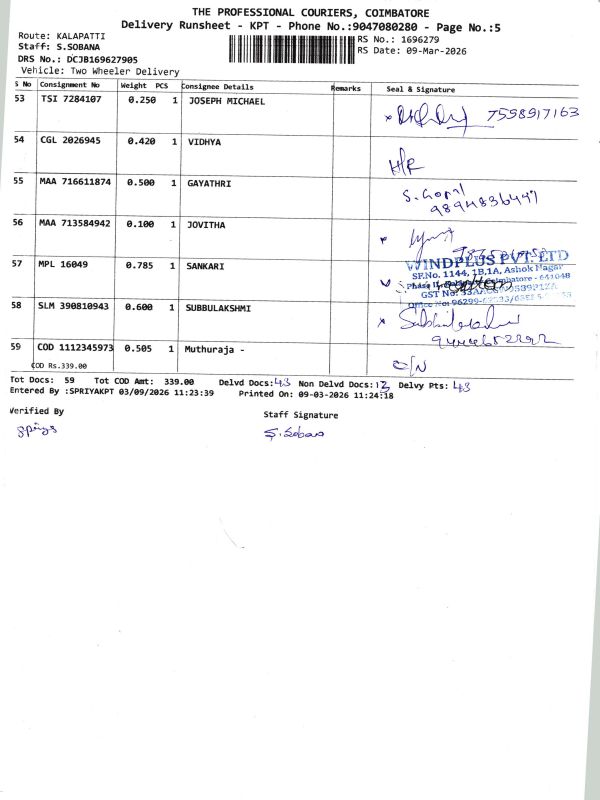 THE PROFESSIONAL COURIERS, COIMBATORE
Delivery Runsheet - KPT - Phone No.:9047080280 - Page No.:5
Route: KALAPATTI
Staff: S.SOBANA
DRS No.: DCJB169627905
Vehicle: Two Wheeler Delivery
RS No.: 1696279
RS Date: 09-Mar-2026
S No Consignment No Weight PCS Consignee Details Remarks Seal & Signature
53 TSI 7284107 0.250 1 JOSEPH MICHAEL 7598917163
54 CGL 2026945 0.420 1 VIDHYA H/R
55 MAA 716611874 0.500 1 GAYATHRI S. Gopal
9894836449
56 MAA 713584942 0.100 1 JOVITHA
57 MPL 16049 0.785 1 SANKARI
WINDPLUS PVT. LTD
SF.No. 1144, 1B,1A, Ashok Nagar
58 SLM 390810943 0.600 1 SUBBULAKSHMI
59 COD 1112345973 0.505 1 Muthuraja - O/N
COD Rs.339.00
Tot Docs: 59 Tot COD Amt: 339.00 Delvd Docs: 43 Non Delvd Docs: 13 Delvy Pts: 43
Entered By :SPRIYAKPT 03/09/2026 11:23:39 Printed On: 09-03-2026 11:24:18
Verified By
Staff Signature
S. Sobana